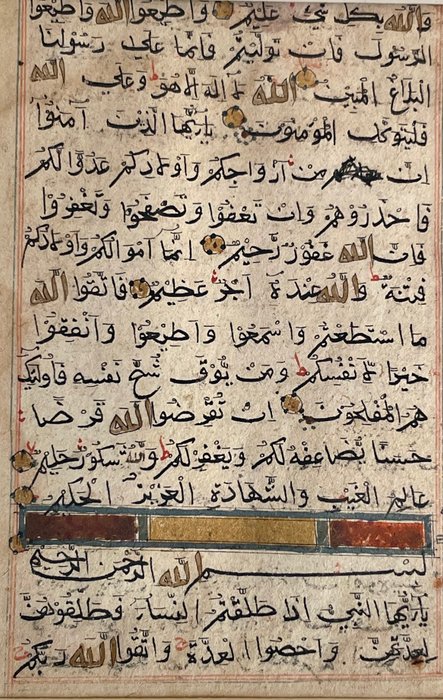 والله بكل شيء عليم واطيعوا الله واطيعوا
الرسول فان توليتم فانما على رسولنا
البلاغ المبين الله لا اله الا هو وعلى الله
فليتوكل المؤمنون يايها الذين آمنوا
ان من ازواجكم واولادكم عدوا لكم
فاحذروهم وان تعفوا وتصفحوا وتغفروا
فان الله غفور رحيم انما اموالكم واولادكم
فتنة والله عنده اجر عظيم فاتقوا الله
ما استطعتم واسمعوا واطيعوا وانفقوا
خيرا لانفسكم ومن يوق شح نفسه فاولئك
هم المفلحون ان تقرضوا الله قرضا
حسنا يضاعفه لكم ويغفر لكم والله شكور حليم
عالم الغيب والشهادة العزيز الحكيم
بسم الله الرحمن الرحيم
يايها النبي اذا طلقتم النساء فطلقوهن
لعدتهن واحصوا العدة واتقوا الله ربكم